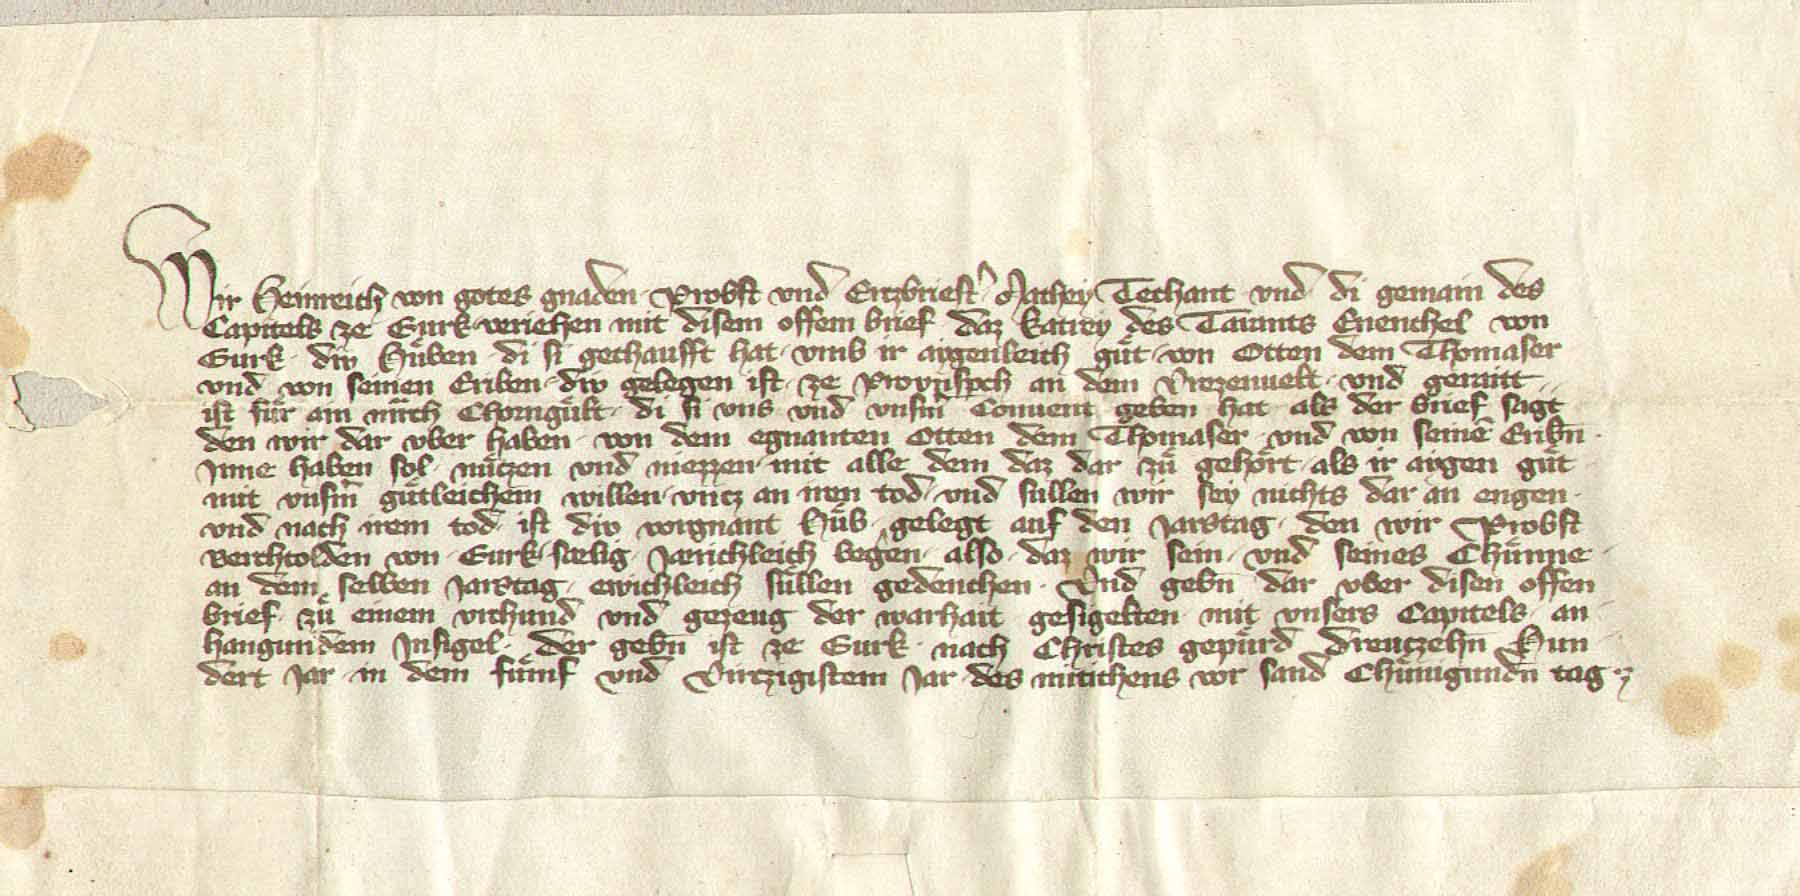 Wir Heinreich von gotes gnaden · Probst vnd Erczbriest(er) · Mathey Techant · vnd di gemain des
Capitels ze Gurk · veriehen mit disem offem brief · daz Katrey des Tauants Enenchel von
Gurk · diw Hůben · di si gechaufft hat · vmb ir aigenleich gůt · von Otten dem Thomaser
vnd von seinen Eriben · diw gelegen ist · ze an dem · vnd geraitt
ist fůr ain march Chorngůlt · di si vns vnd vnserm Conuent geben hat als der brief sagt
den wir dar vber haben · von dem egnanten Otten dem Thomaser · vnd von seinē Eribn̄ ·
Inne haben sol · nůtzen vnd niezzen · mit alle dem daz dar zů gehört · als ir aigen gůt
mit vnserm gůtleichem willen · vntz an iren tod · vnd sullen wir sey nichts dar an engen ·
vnd nach irem tod · ist diw vorgnant Hůb · gelegt auf den Jarstag · den wir Probst
Berchtolden von · Gurk · sælig · Jærichleich begen · also · daz wir sein · vnd seines Chůnne ·
an dem selben Jarstag · ewichleich sůllen gedenchen · Vnd gebn̄ dar vber disen offen
brief · zů einem vrchund vnd gezeug der warhait gesigelten · mit vnsers Capitels · an
hangundem Insigel · der gebn̄ ist ze Gurk · nach Christes gepůrd Dreutzehn̄ Hun
dert Jar · in dem fůmf vnd Virtzigistem Jar · des mittichens vor sand Chůnigundn̄ tag ·